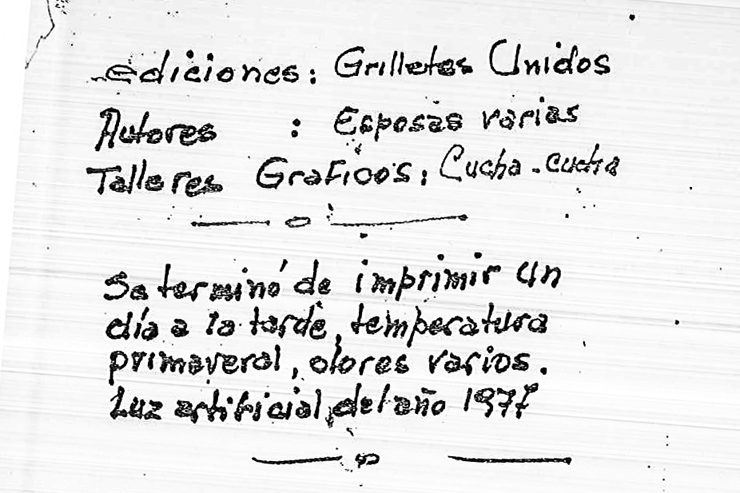 ediciones: Grilletes Unidos
Autores : Esposas varias
Talleres Graficos: Cucha-cucha
Se terminó de imprimir un
día a la tarde, temperatura
primaveral, olores varios.
Luz artificial, del año 1977